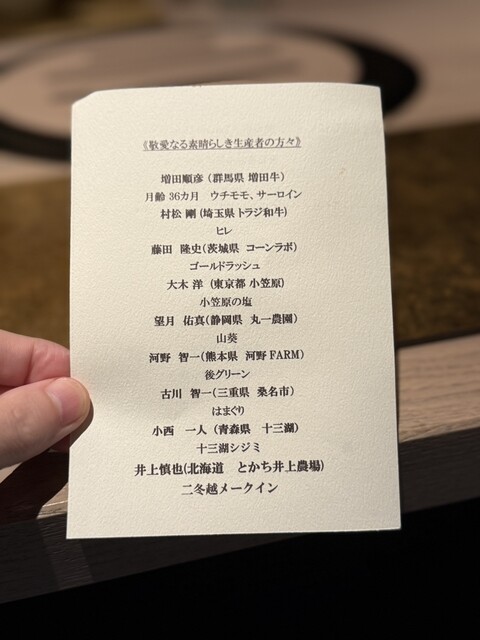 《敬愛なる素晴らしき生産者の方々》
増田順彦（群馬県 増田牛）
月齢 36カ月　ウチモモ、サーロイン
村松 剛(埼玉県 トラジ和牛)
ヒレ
藤田　隆史(茨城県　コーンラボ)
ゴールドラッシュ
大木 洋（東京都 小笠原）
小笠原の塩
望月　佑真(静岡県　丸一農園）
山葵
河野　智一(熊本県　河野 FARM）
後グリーン
古川　智一(三重県　桑名市）
はまぐり
小西　一人（青森県　十三湖）
十三湖シジミ
井上慎也(北海道　とかち井上農場)
二冬越メークイン